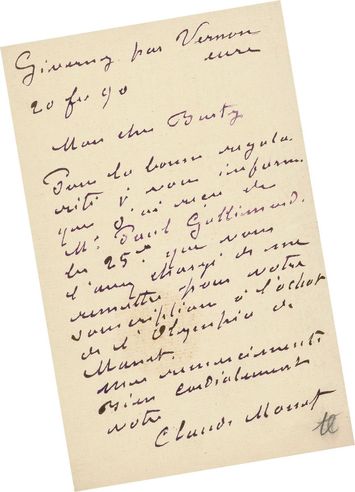 Giverny par Vernon
eure
20 fev 90
Mon cher Burty
Pour la bonne régula-
rité je vous informe
que j'ai reçu de
Mr Paul Gallimard.
les 25 f. que vous
l'avez chargé de me
remettre pour votre
souscription à l'achat
de l'Olympia de
Manet.
mes remerciements
bien cordialement
votre
Claude Monet